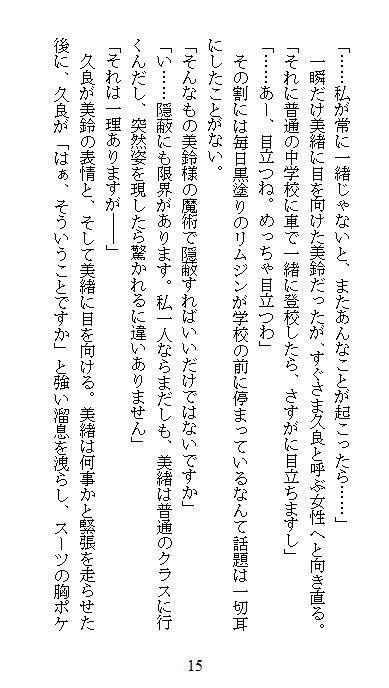 「……私が常に一緒じゃないと、またあんなことが起こったら……」
　一瞬だけ美緒に目を向けた美鈴だったが、すぐさま久良と呼ぶ女性へと向き直る。
「それに普通の中学校に車で一緒に登校したら、さすがに目立ちますし」
「……あー、目立つね。めっちゃ目立つわ」
　その割には毎日黒塗りのリムジンが学校の前に停まっているなんて話題は一切耳
にしたことがない。
「そんなもの美鈴様の魔術で隠蔽すればいいだけではないですか」
「い……隠蔽にも限界があります。私一人ならまだしも、美緒は普通のクラスに行
くんだし、突然姿を現したら驚かれるに違いありません」
「それは一理ありますが――」
　久良が美鈴の表情と、そして美緒に目を向ける。美緒は何事かと緊張を走らせた
後に、久良が「はぁ、そういうことですか」と強い溜息を洩らし、スーツの胸ポケ
15